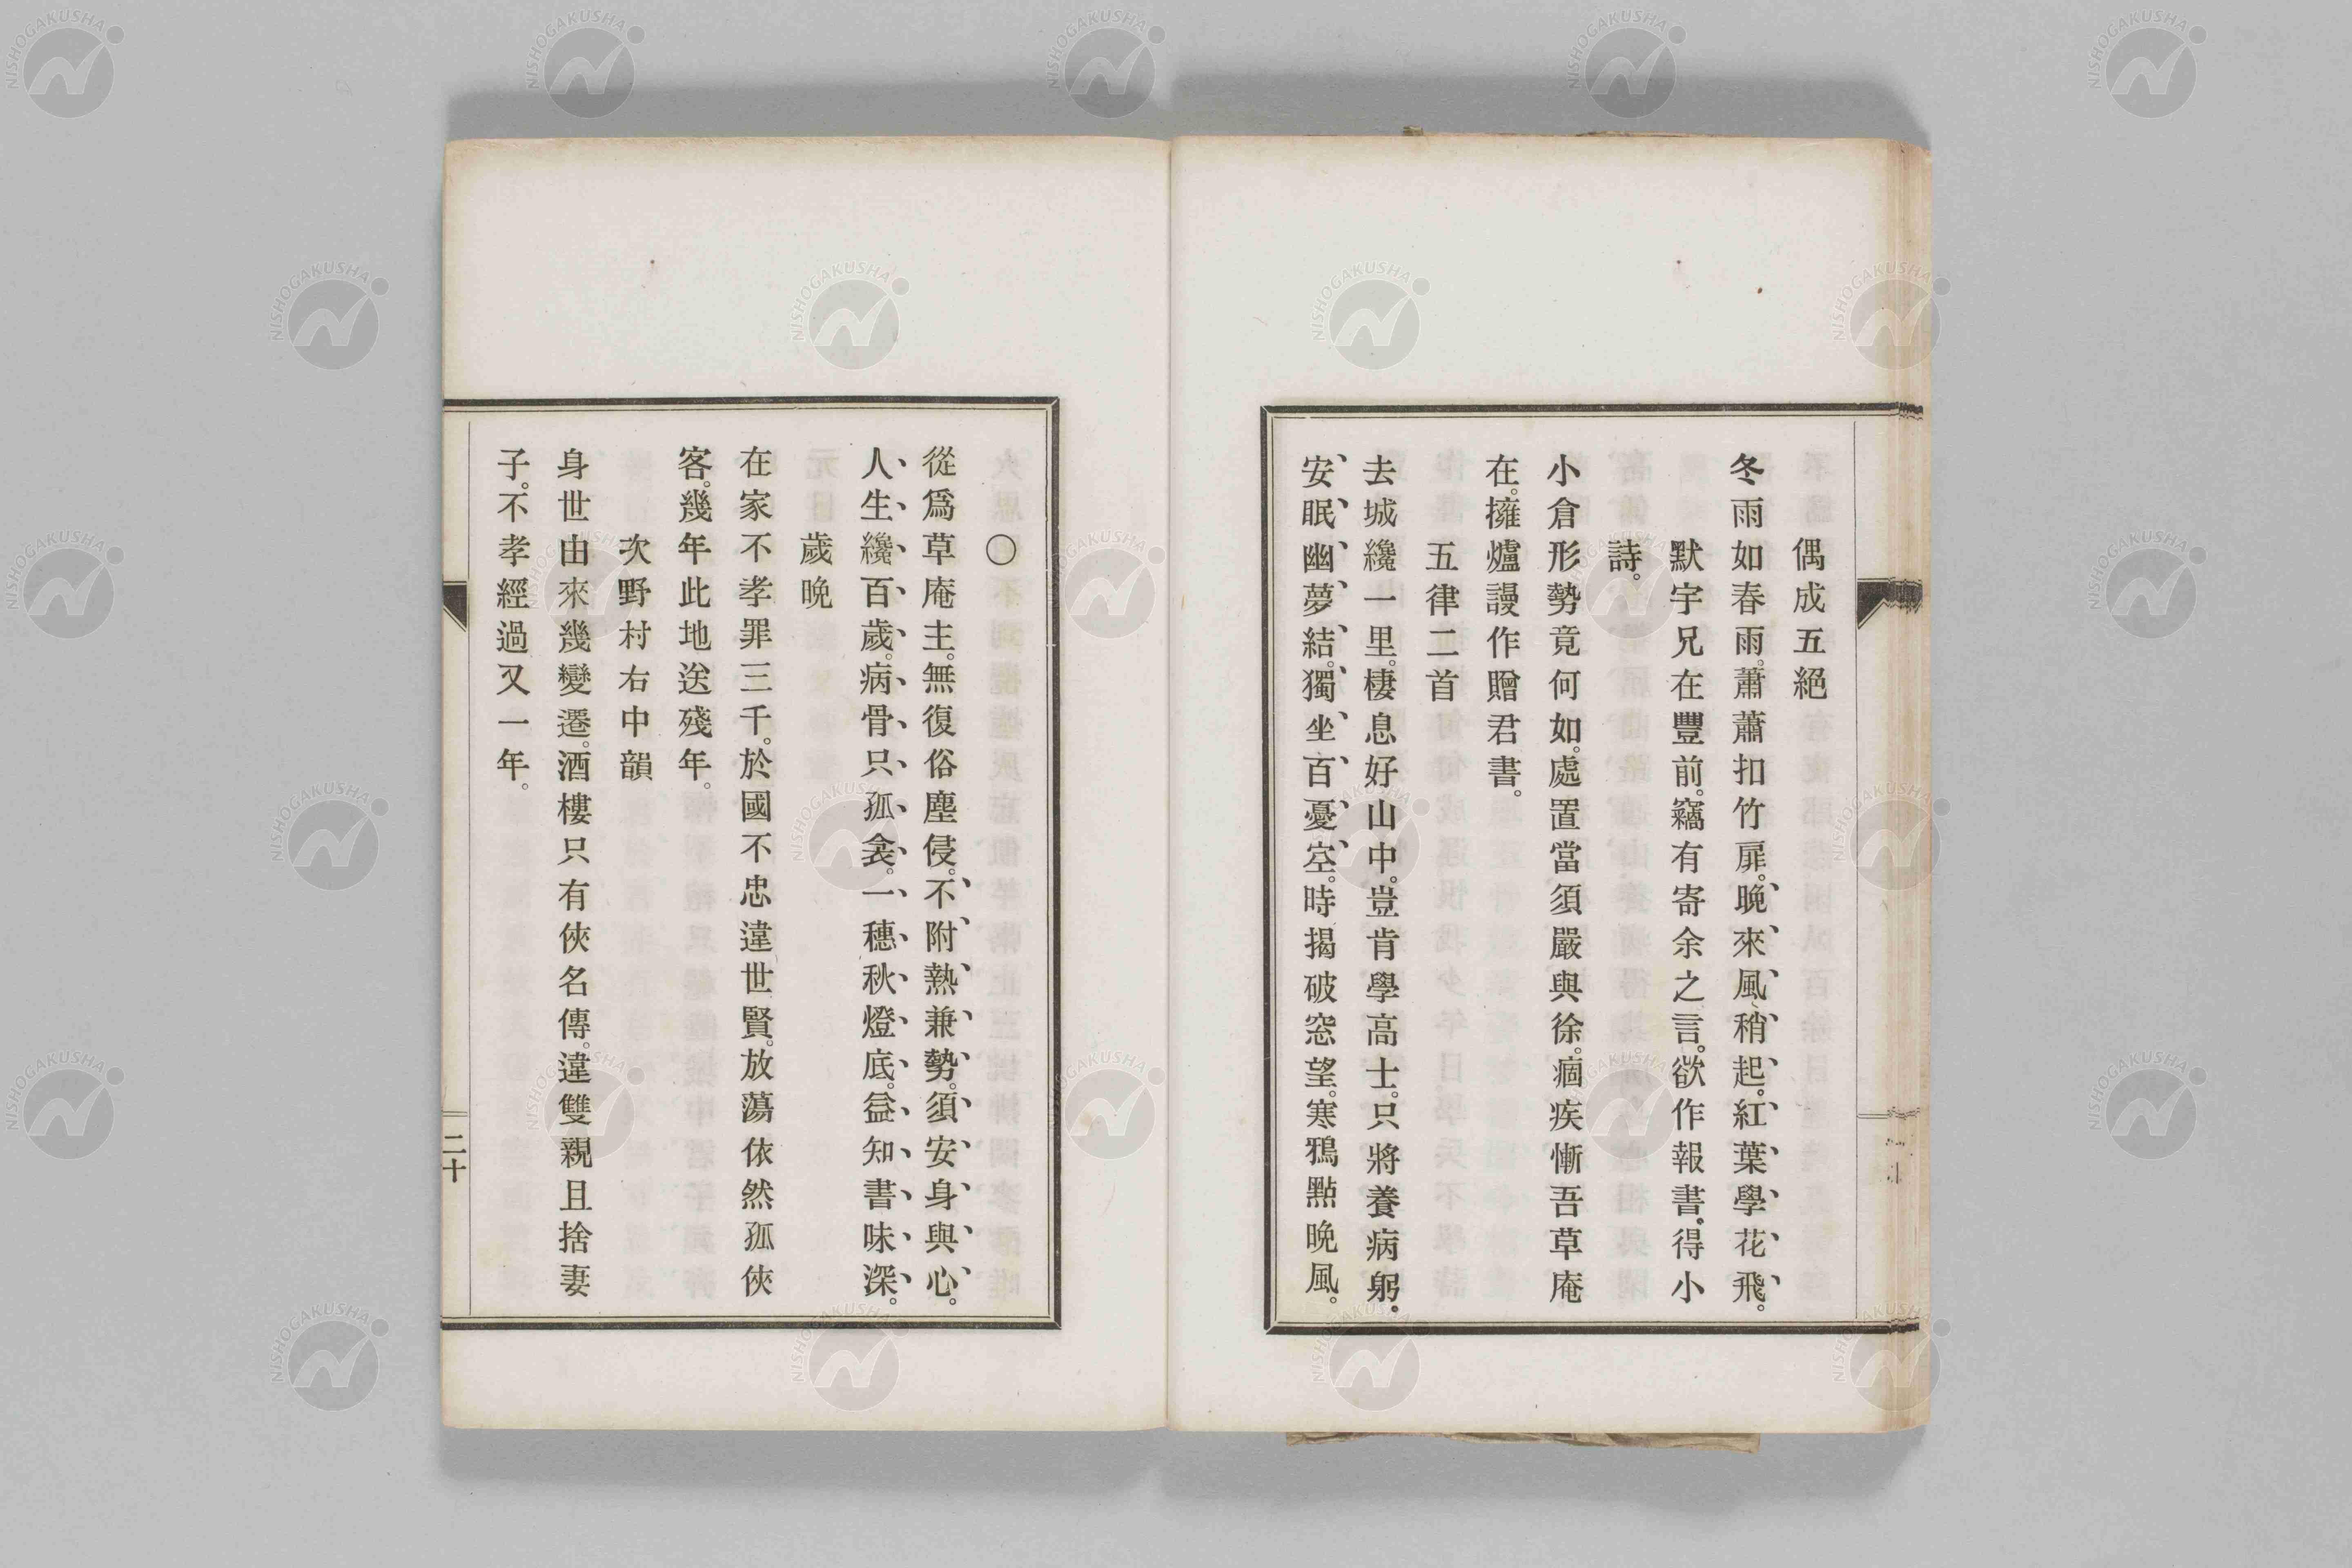 偶成五絕
冬雨如春雨。蕭蕭扣竹扉。晩來風稍起。紅葉學花飛。
默宇兄在豐前。竊有寄余之言。欲作報書。得小
詩。
小倉形勢竟何如。處置當須嚴與徐。痼疾慚吾草庵
在。擁爐謾作贈君書。
五律二首
去城纔一里。棲息好山中。豈肯學高士。只將養病躬。
安眠幽夢結。獨坐百憂空。時揭破窓望。寒鴉點晩風。
〇
從爲草庵主。無復俗塵侵。不附熱兼勢。須安身與心。
人生纔百歲。病骨只孤衾。一穗秋燈底。益知書味深。
歲晩
在家不孝罪三千。於國不忠違世賢。放蕩依然孤俠
客。幾年此地送殘年。
次野村右中韻
身世由來幾變遷。酒樓只有俠名傳。違雙親且捨妻
子。不孝經過又一年。
二十
NISHOGAKUSHA